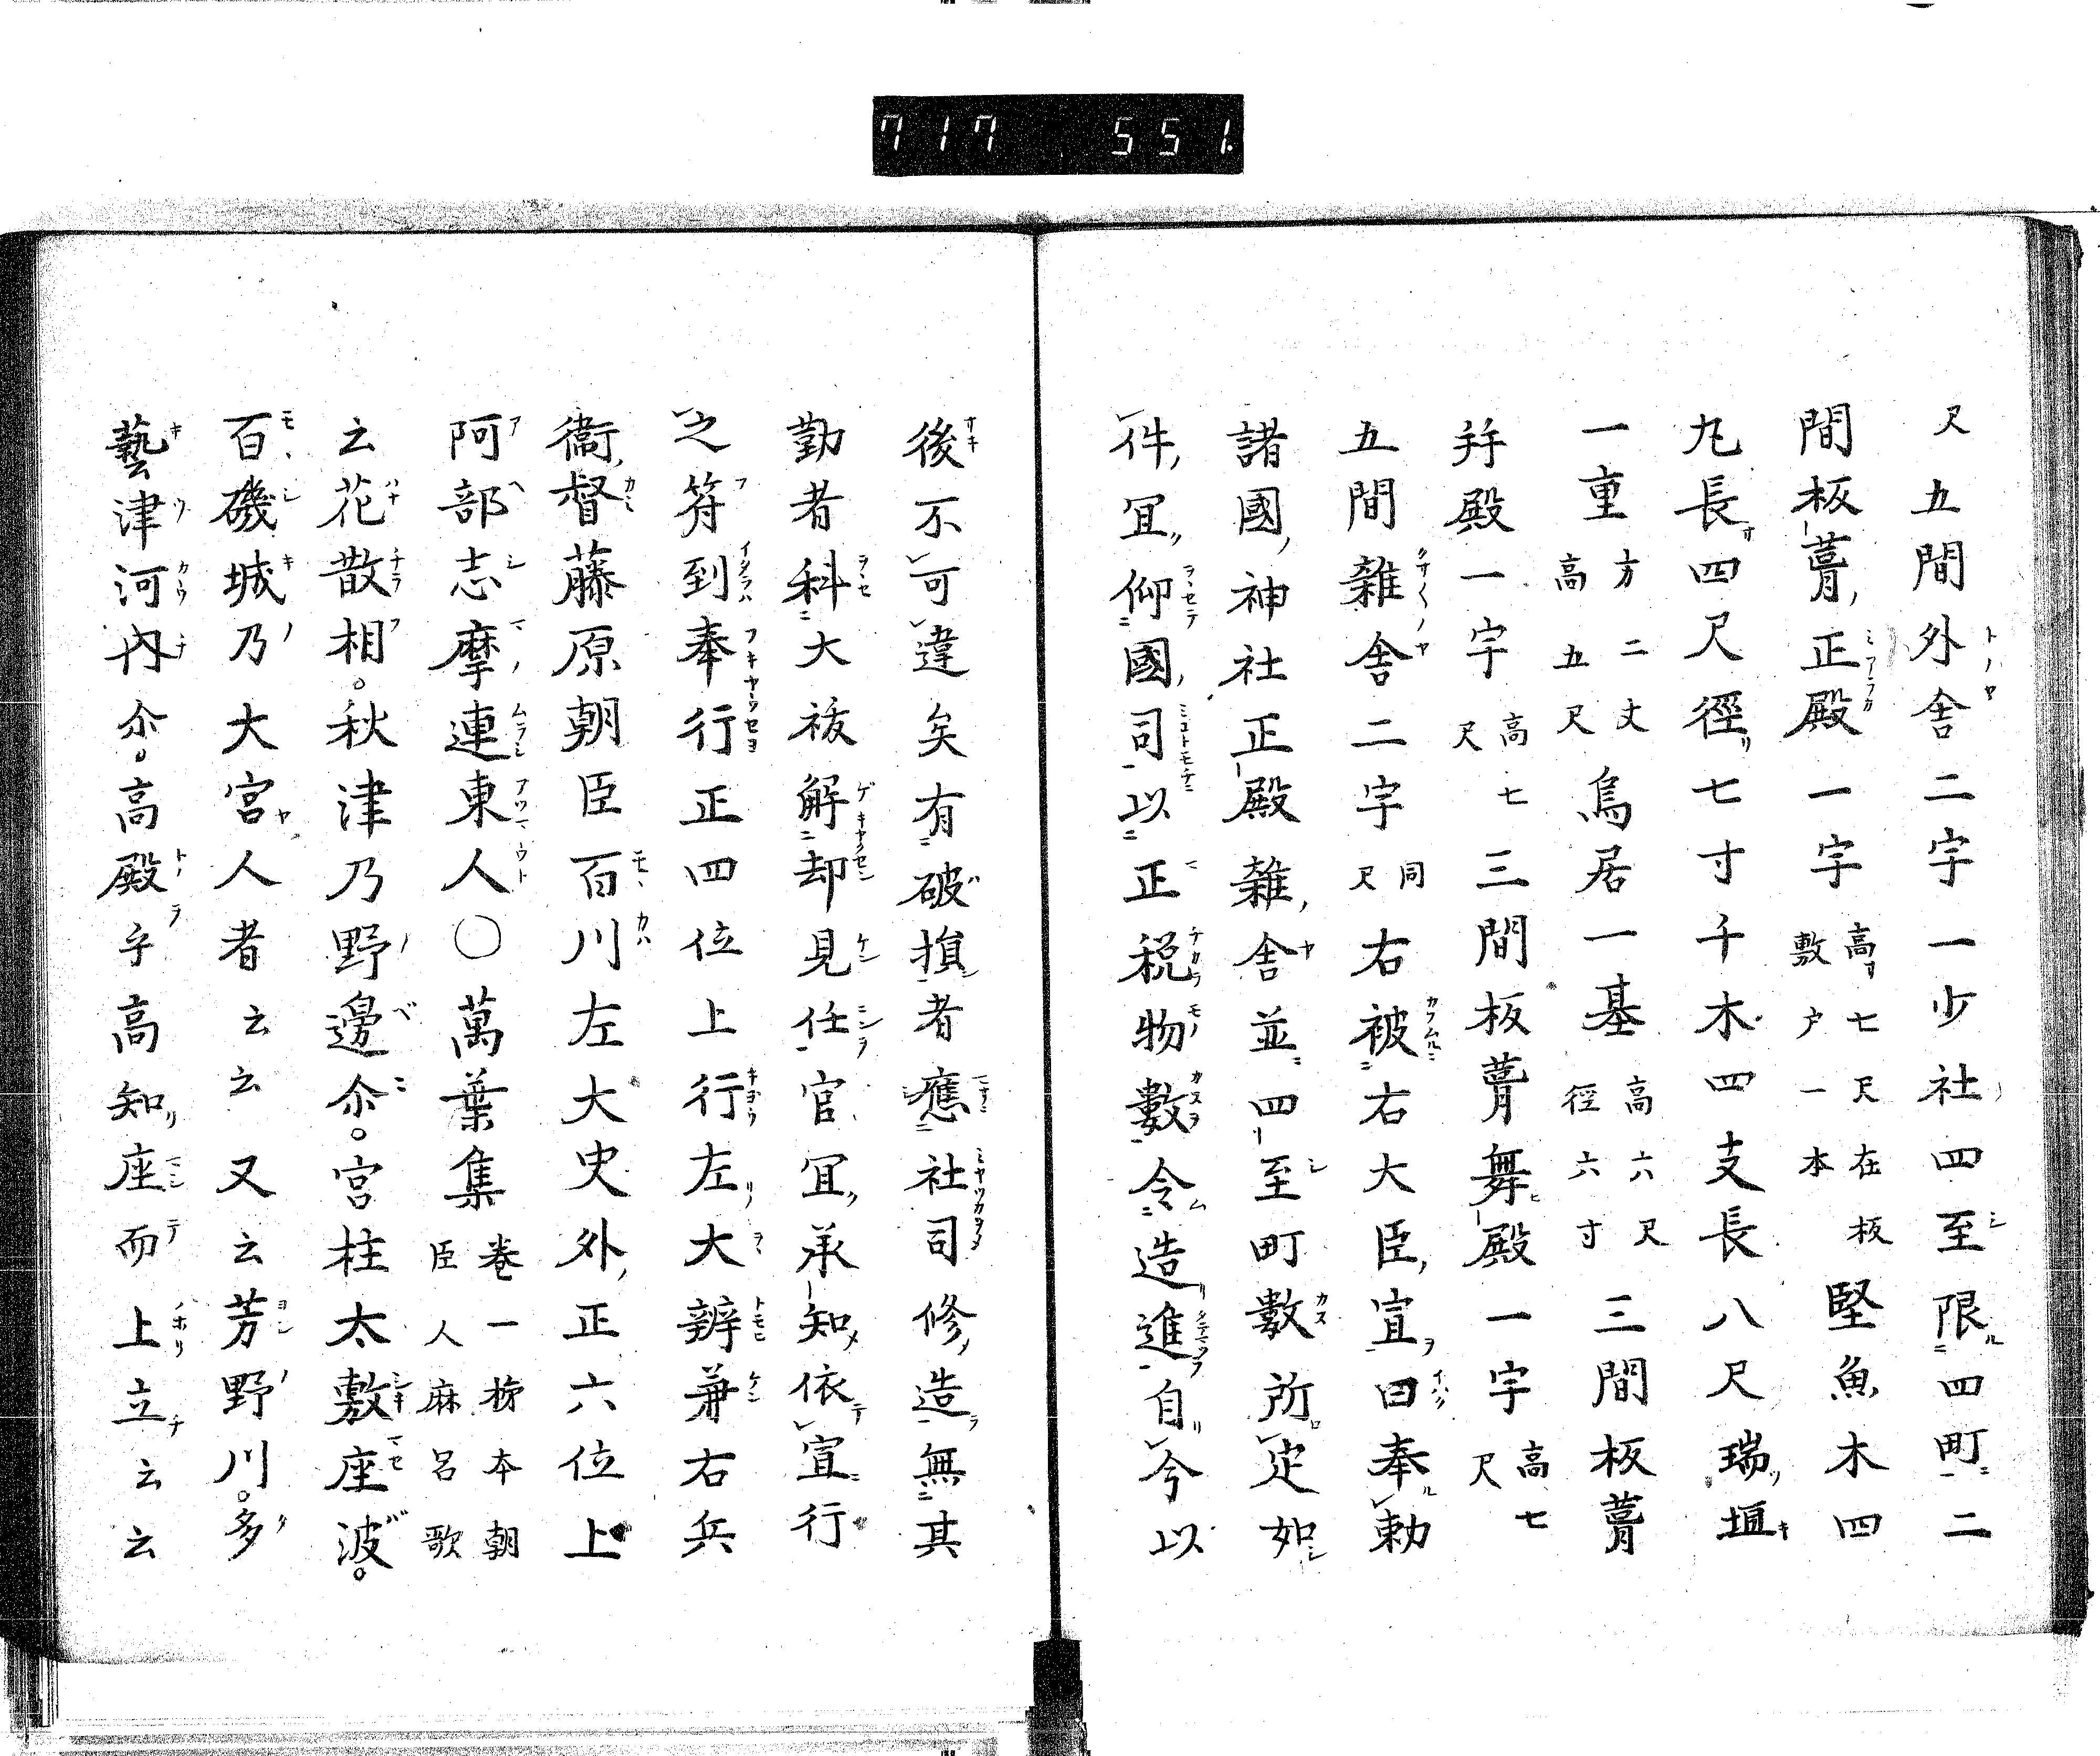 717 551.
尺 五間外舎二宇一少社四至限四町二
間板葺正殿一宇高七尺在板敷戸一本堅魚木四
丸長四尺徑七寸千木四支長八尺瑞垣
一重方二丈高五尺鳥居一基高六尺徑六寸三間板葺
并殿一宇高七尺三間板葺舞殿一宇高七尺
五間雜舎二宇同尺右被右大臣宣曰奉勅
諸國神社正殿雜舎並四至町數所定如
件宜仰國司以正税物數令造進自今以
後不可違矣有破損者應社司修造無其
勤者科大祓解却見任官宜承知依宣行
之符到奉行正四位上行左大辨兼右兵
衞督藤原朝臣百川左大史外正六位上
阿部志摩連東人〇萬葉集巻一柿本朝臣人麻呂歌
云花散相。秋津乃野邊尒。宮柱太敷座波。
百磯城乃大宮人者云云又云芳野川。多
藝津河内尒。高殿乎高知座而上立云云